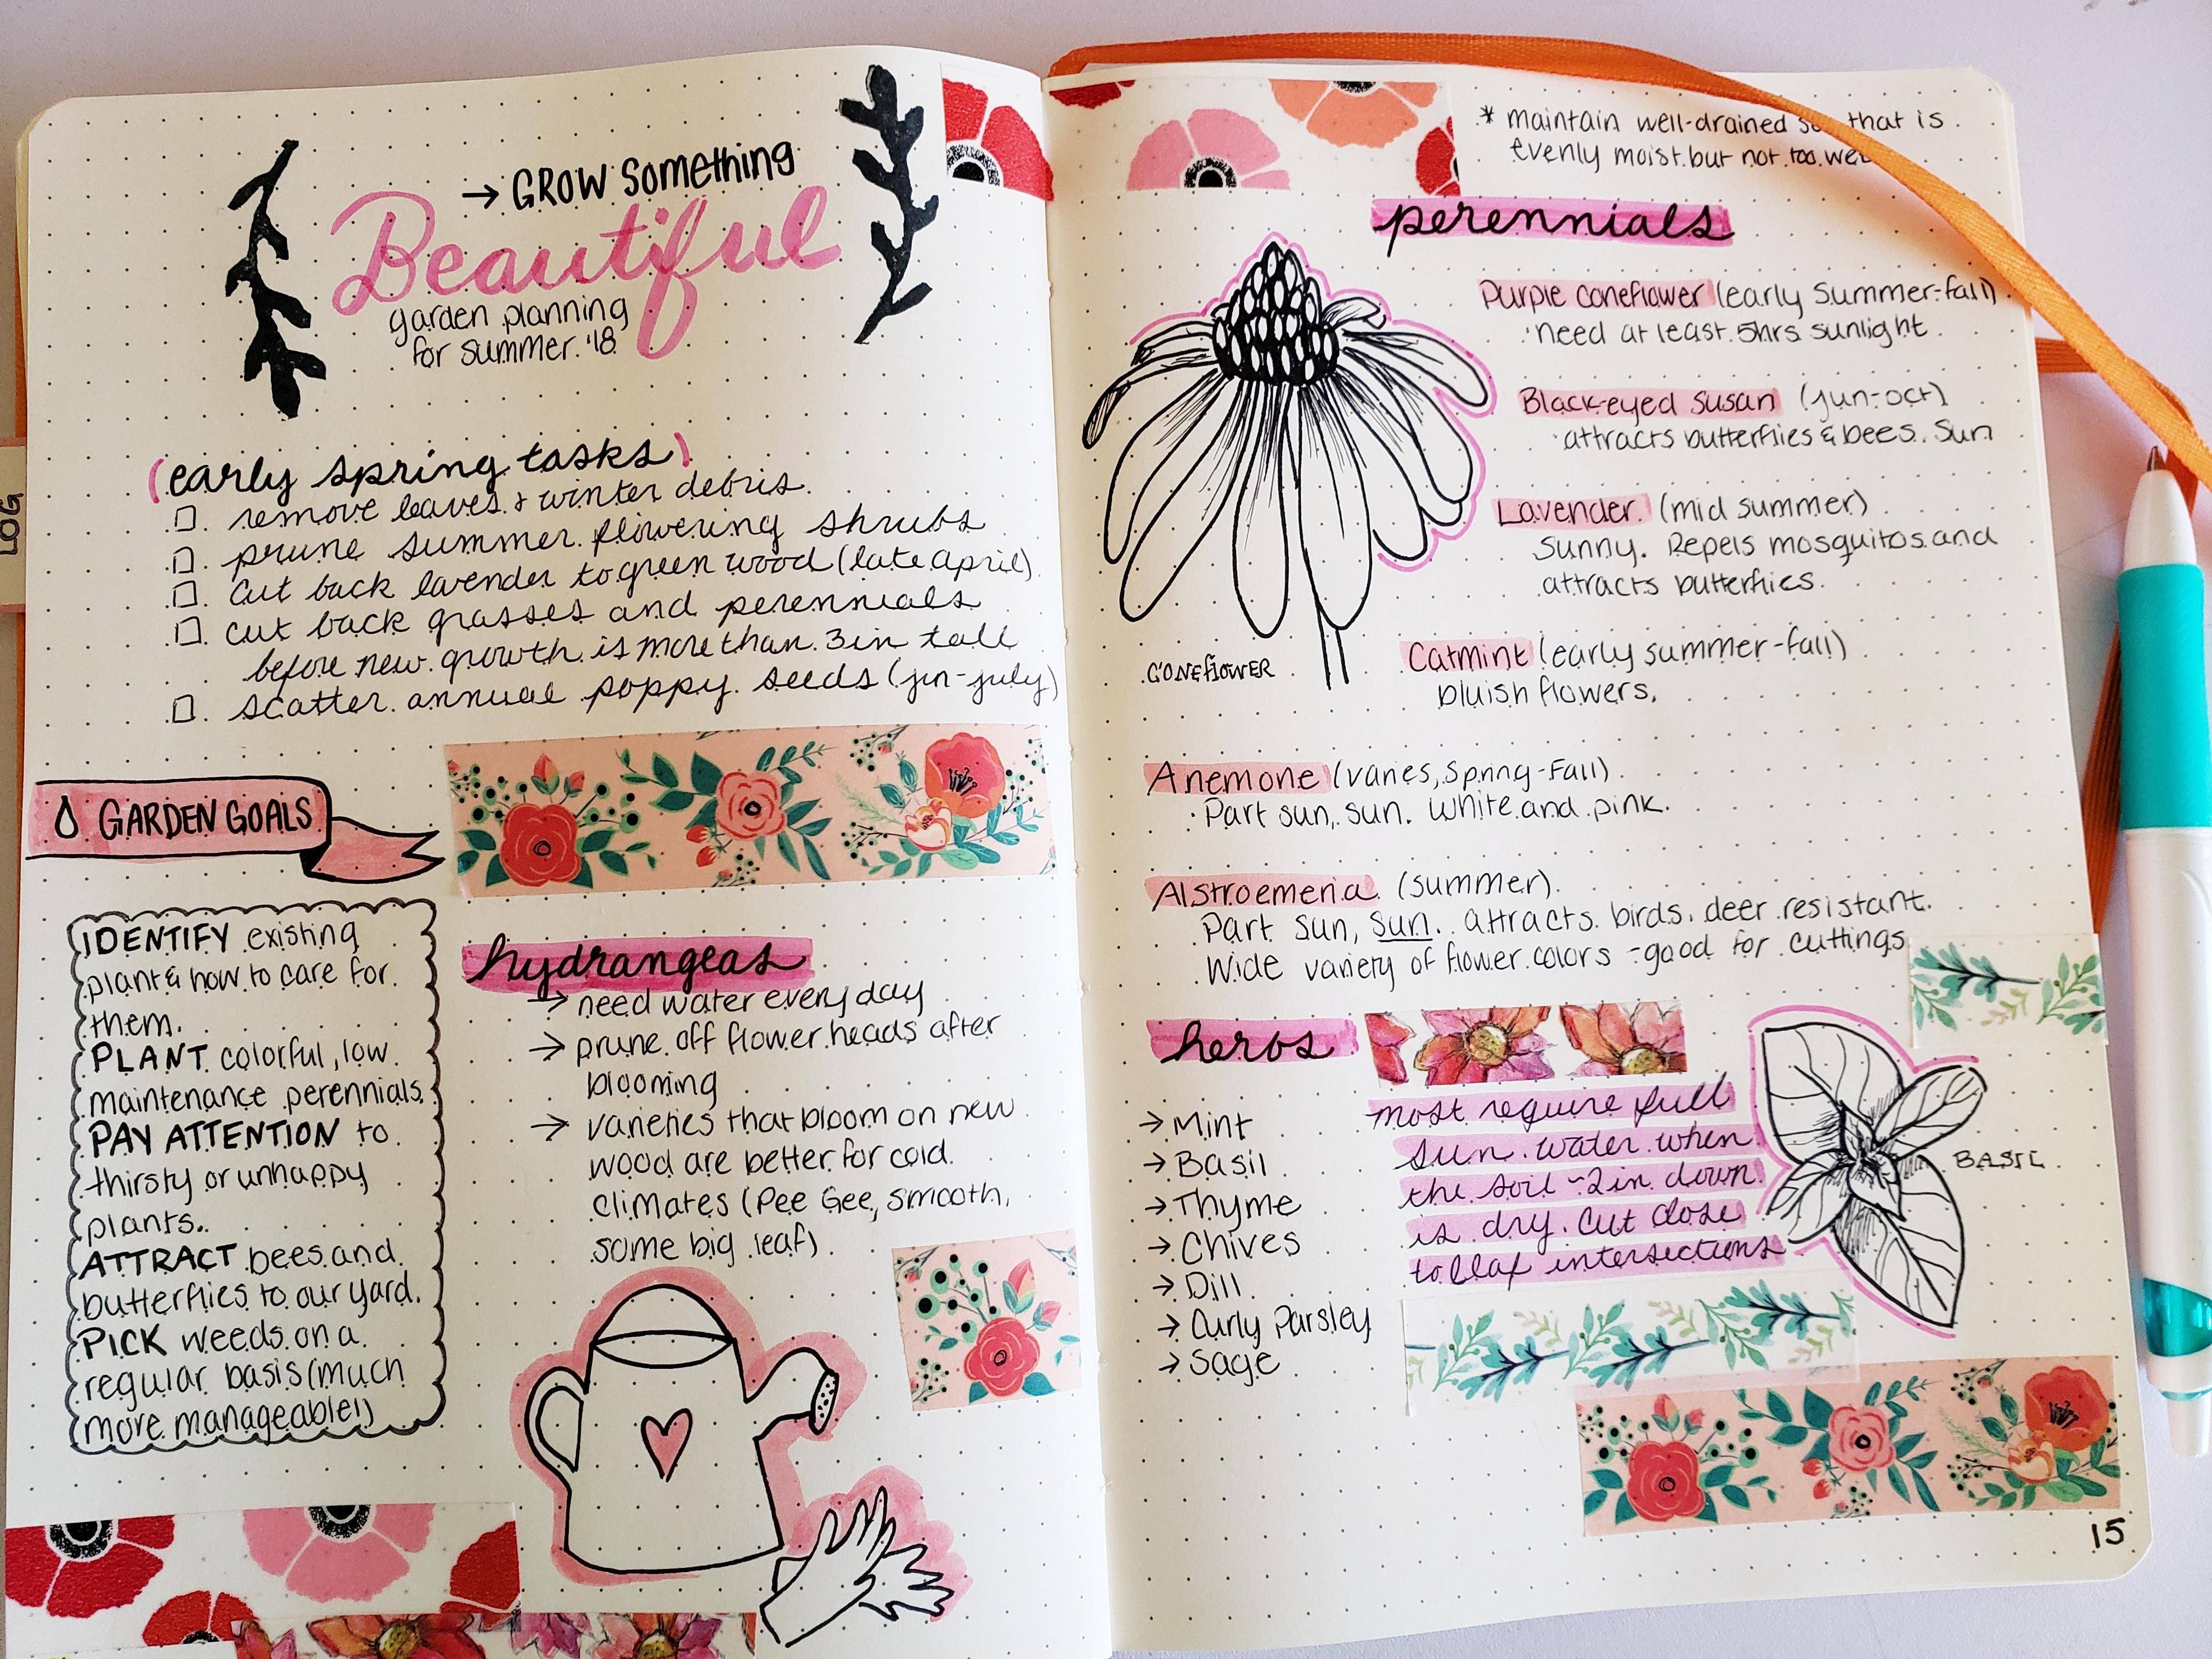 LOG
→ GROW something
Beautiful
garden planning
for summer '18
(early spring tasks)
□ remove leaves & winter debris
□ prune summer flowering shrubs
□ cut back lavender to green wood (late april)
□ cut back grasses and perennials
before new growth is more than 3in tall
□ scatter annual poppy seeds (jun-july)
GARDEN GOALS
IDENTIFY existing
plant & how to care for
them.
PLANT colorful, low
maintenance perennials.
PAY ATTENTION to
thirsty or unhappy
plants.
ATTRACT bees and
butterflies to our yard.
PICK weeds on a
regular basis (much
more manageable!)
hydrangeas
→ need water every day
→ prune off flower heads after
blooming
→ varieties that bloom on new
wood are better for cold
climates (Pee Gee, smooth,
some big leaf)
* maintain well-drained that is
evenly moist but not too wet
perennials
Purple coneflower (early summer-fall)
· need at least 5hrs sunlight
Black-eyed susan (jun-oct)
· attracts butterflies & bees. Sun
Lavender (mid summer)
Sunny. Repels mosquitos and
attracts butterflies.
CONEflOWER
Catmint (early summer-fall)
bluish flowers.
Anemone (varies, Spring-Fall)
· Part sun, sun. White and pink.
Alstroemeria (summer)
Part sun, sun. attracts birds. deer resistant.
Wide variety of flower colors - good for cuttings
herbs
→ Mint
→ Basil
→ Thyme
→ Chives
→ Dill
→ Curly Parsley
→ Sage
most require full
sun. water when
the soil ~2in down
is dry. Cut close
to leaf intersections
BASIL
15